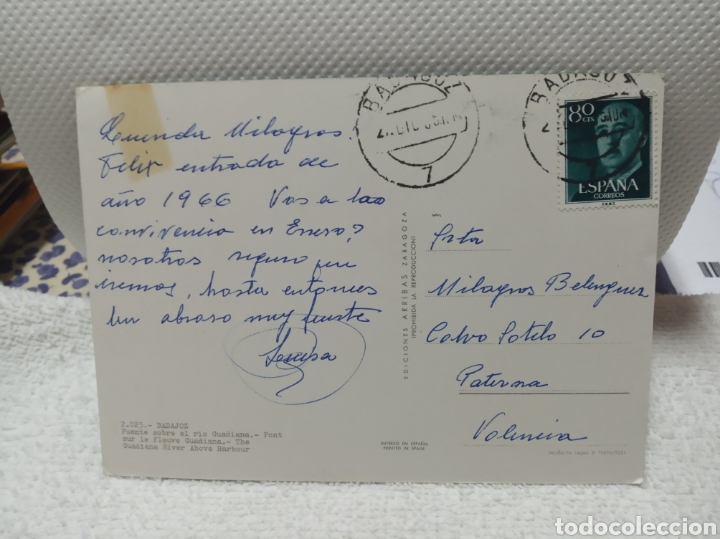 BADAJOZ
7
BADAJOZ
80
CTS
ESPAÑA
CORREOS
Querida Milagros
Feliz entrada de
año 1966 Vas a las
convivencia en Enero?
nosotros seguro que
iremos, hasta entonces
Un abraso muy fuerte
EDICIONES ARRIBAS ZARAGOZA
(PROHIBIDA LA REPRODUCCION)
Srta
Milagros Belenguer
Calvo Sotelo 10
Paterna
Valencia
2.023.- BADAJOZ
Puente sobre el río Guadiana.- Pont
sur le fleuve Guadiana.- The
Guadiana River Above Harbour
IMPRESO EN ESPAÑA
PRINTED IN SPAIN
Depósito Legal
todocoleccion